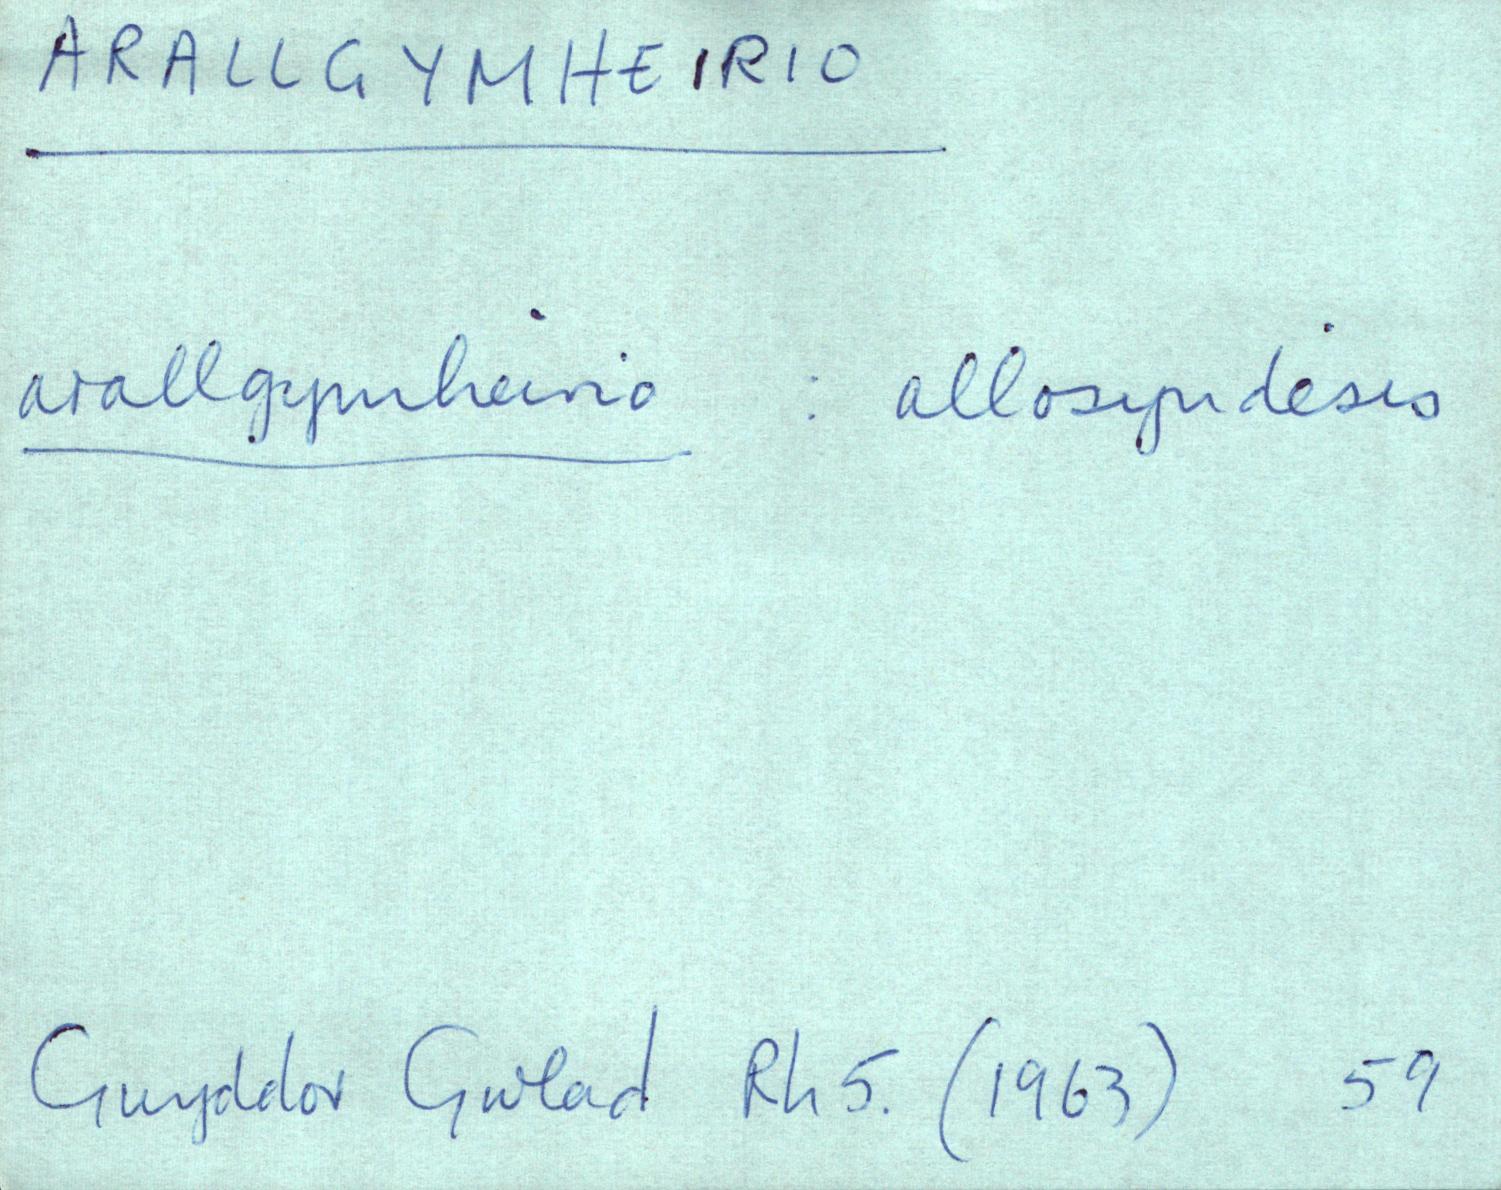 ARALLGYMHEIRIO
arallgymheirio : allosyndesis
Gwyddor Gwlad Rh 5. (1963) 59